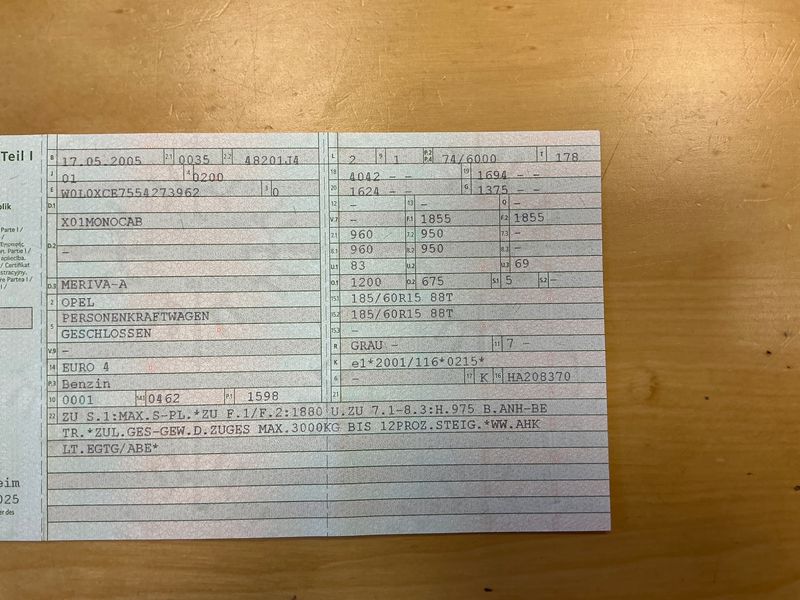 Teil I
B 17.05.2005 2.1 0035 2.2 48201J4
J 01 4 0200
E W0L0XCE7554273962 3 0
D.1
X01MONOCAB
D.2
–
D.3 MERIVA-A
2 OPEL
5 PERSONENKRAFTWAGEN
GESCHLOSSEN
V.9 –
14 EURO 4
P.3 Benzin
10 0001 14.1 0462 P.1 1598
L 2 9 1 P.2 P.4 74/6000 T 178
18 4042 – – 19 1694 – –
20 1624 – – G 1375 – –
12 – 13 – Q –
V.7 – F.1 1855 F.2 1855
7.1 960 7.2 950 7.3 –
8.1 960 8.2 950 8.3 –
U.1 83 U.2 U.3 69
O.1 1200 O.2 675 S.1 5 S.2 –
15.1 185/60R15 88T
15.2 185/60R15 88T
15.3 –
R GRAU – 11 7 –
K e1*2001/116*0215*
6 – 17 K 16 HA208370
21
22 ZU S.1:MAX.S-PL.*ZU F.1/F.2:1880 U.ZU 7.1-8.3:H.975 B.ANH-BE
TR.*ZUL.GES-GEW.D.ZUGES MAX.3000KG BIS 12PROZ.STEIG.*WW.AHK
LT.EGTG/ABE*
blik
Parte I /
Parte I /
apliecība.
/ Certifikat
Partea I /
eim
025
er des